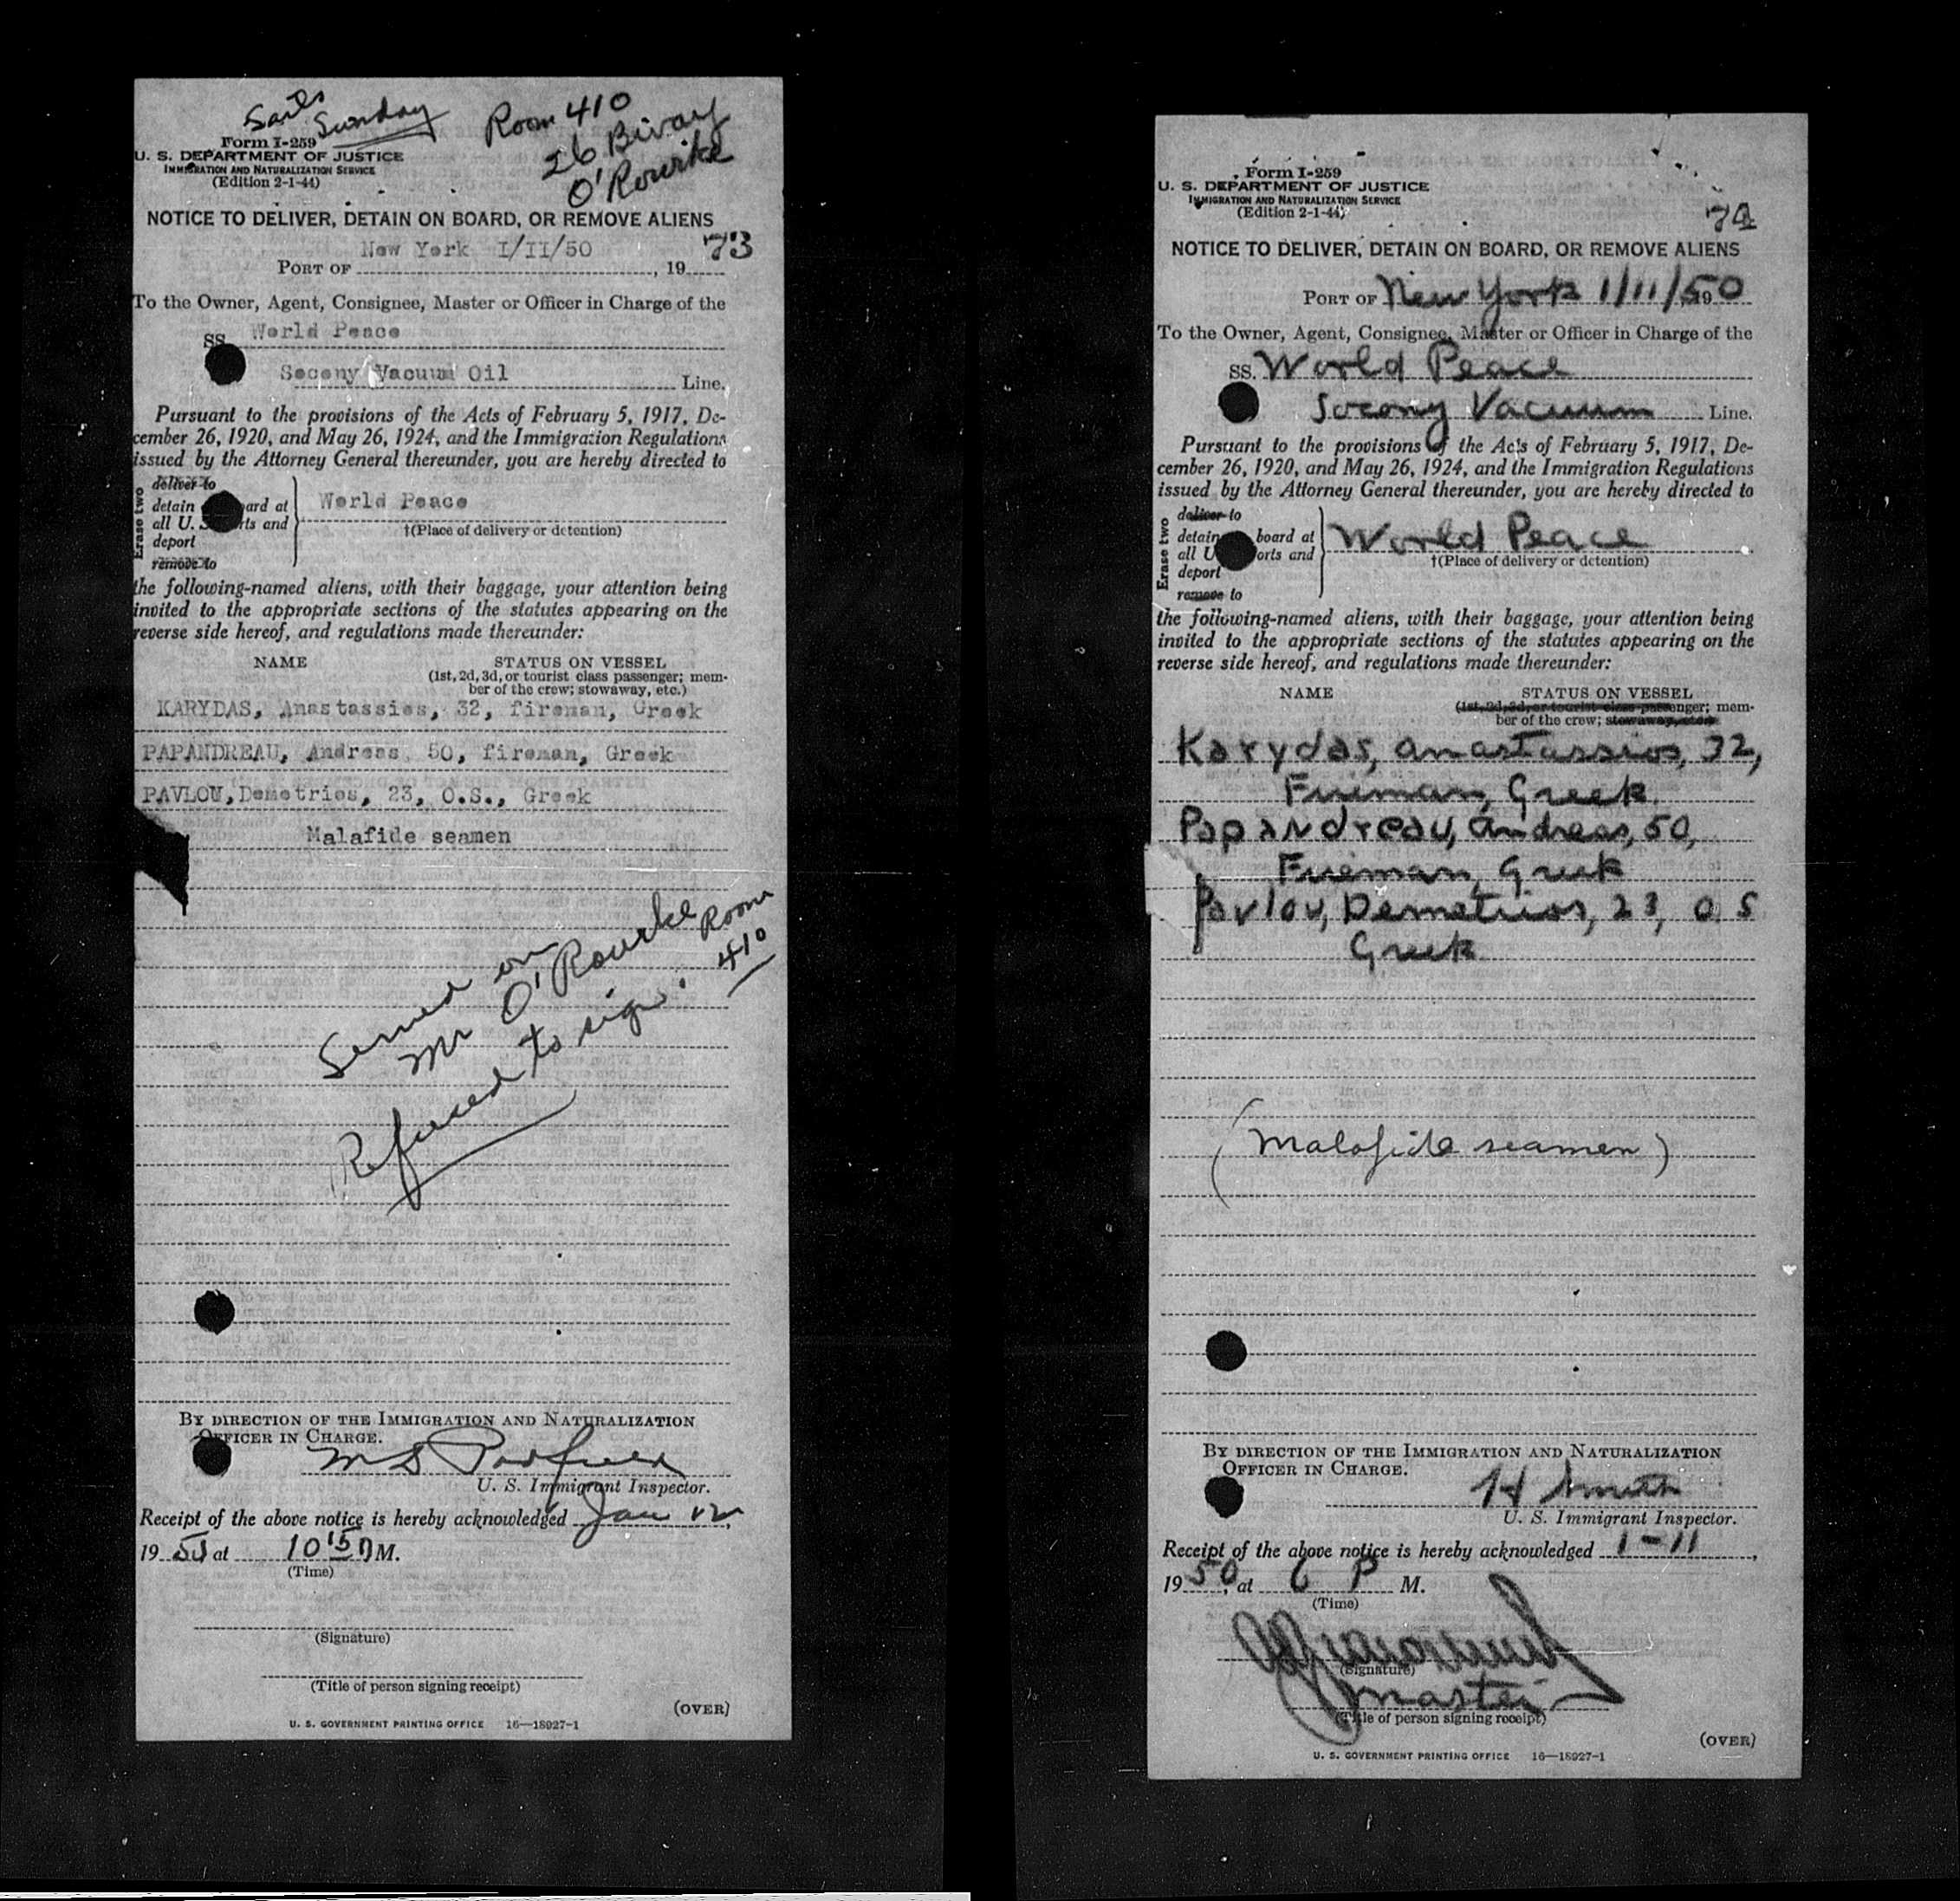 Sails
Sunday
Room 410
26 Bway
O'Rourke
Form I-259
U. S. DEPARTMENT OF JUSTICE
IMMIGRATION AND NATURALIZATION SERVICE
(Edition 2-1-44)
NOTICE TO DELIVER, DETAIN ON BOARD, OR REMOVE ALIENS
73
New York I/II/50
PORT OF , 19
To the Owner, Agent, Consignee, Master or Officer in Charge of the
SS. World Peace
Socony Vacuum Oil Line.
Pursuant to the provisions of the Acts of February 5, 1917, De-
cember 26, 1920, and May 26, 1924, and the Immigration Regulations
issued by the Attorney General thereunder, you are hereby directed to
Erase two
deliver to
detain board at
all U. S. ports and
deport
remove to
World Peace
†(Place of delivery or detention)
the following-named aliens, with their baggage, your attention being
invited to the appropriate sections of the statutes appearing on the
reverse side hereof, and regulations made thereunder:
NAME STATUS ON VESSEL
(1st, 2d, 3d, or tourist class passenger; mem-
ber of the crew; stowaway, etc.)
KARYDAS, Anastassios, 32, fireman, Greek
PAPANDREAU, Andreas 50, fireman, Greek
PAVLOU, Demetrios, 23, O.S., Greek
Malafide seamen
Served on
Mr O'Rourke Room
410
Refused to sign.
BY DIRECTION OF THE IMMIGRATION AND NATURALIZATION
OFFICER IN CHARGE.
U. S. Immigrant Inspector.
Receipt of the above notice is hereby acknowledged Jan 12,
19 50 at 10 15 M.
(Time)
(Signature)
(Title of person signing receipt)
(OVER)
U. S. GOVERNMENT PRINTING OFFICE 16—18927-1
Form I-259
U. S. DEPARTMENT OF JUSTICE
IMMIGRATION AND NATURALIZATION SERVICE
(Edition 2-1-44)
74
NOTICE TO DELIVER, DETAIN ON BOARD, OR REMOVE ALIENS
PORT OF New York 1/11/50
To the Owner, Agent, Consignee, Master or Officer in Charge of the
SS. World Peace
Socony Vacuum Line.
Pursuant to the provisions of the Acts of February 5, 1917, De-
cember 26, 1920, and May 26, 1924, and the Immigration Regulations
issued by the Attorney General thereunder, you are hereby directed to
Erase two
deliver to
detain board at
all U ports and
deport
remove to
World Peace
†(Place of delivery or detention)
the following-named aliens, with their baggage, your attention being
invited to the appropriate sections of the statutes appearing on the
reverse side hereof, and regulations made thereunder:
NAME STATUS ON VESSEL
(1st, 2d, 3d, or tourist class passenger; mem-
ber of the crew; stowaway, etc.)
Karydas, Anastassios, 32,
Fireman, Greek
Papandreau, Andreas, 50,
Fireman, Greek
Pavlou, Demetrios, 23, O S
Greek
(Malafide seamen)
BY DIRECTION OF THE IMMIGRATION AND NATURALIZATION
OFFICER IN CHARGE.
H Smith
U. S. Immigrant Inspector.
Receipt of the above notice is hereby acknowledged 1-11,
19 50, at 6 P M.
(Time)
(Signature)
Master
(Title of person signing receipt)
(OVER)
U. S. GOVERNMENT PRINTING OFFICE 16—18927-1